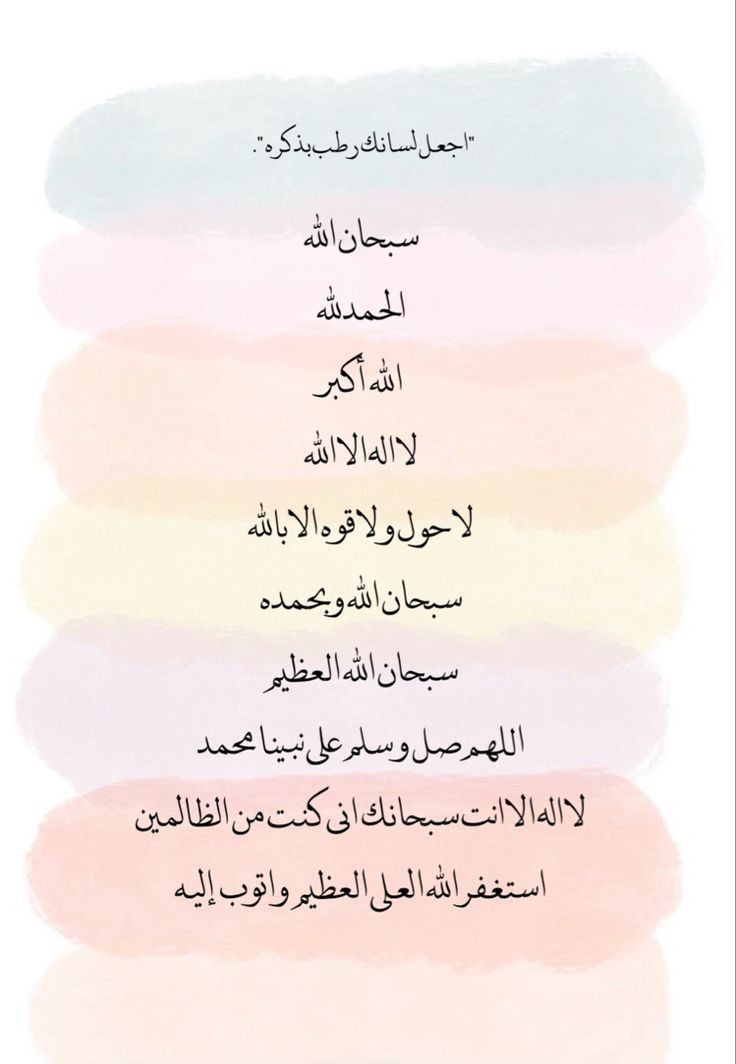 "اجعل لسانك رطب بذكره".
سبحان الله
الحمدلله
الله أكبر
لا اله الا الله
لا حول ولا قوه الا بالله
سبحان الله وبحمده
سبحان الله العظيم
اللهم صل وسلم على نبينا محمد
لا اله الا انت سبحانك انى كنت من الظالمين
استغفر الله العلى العظيم واتوب إليه